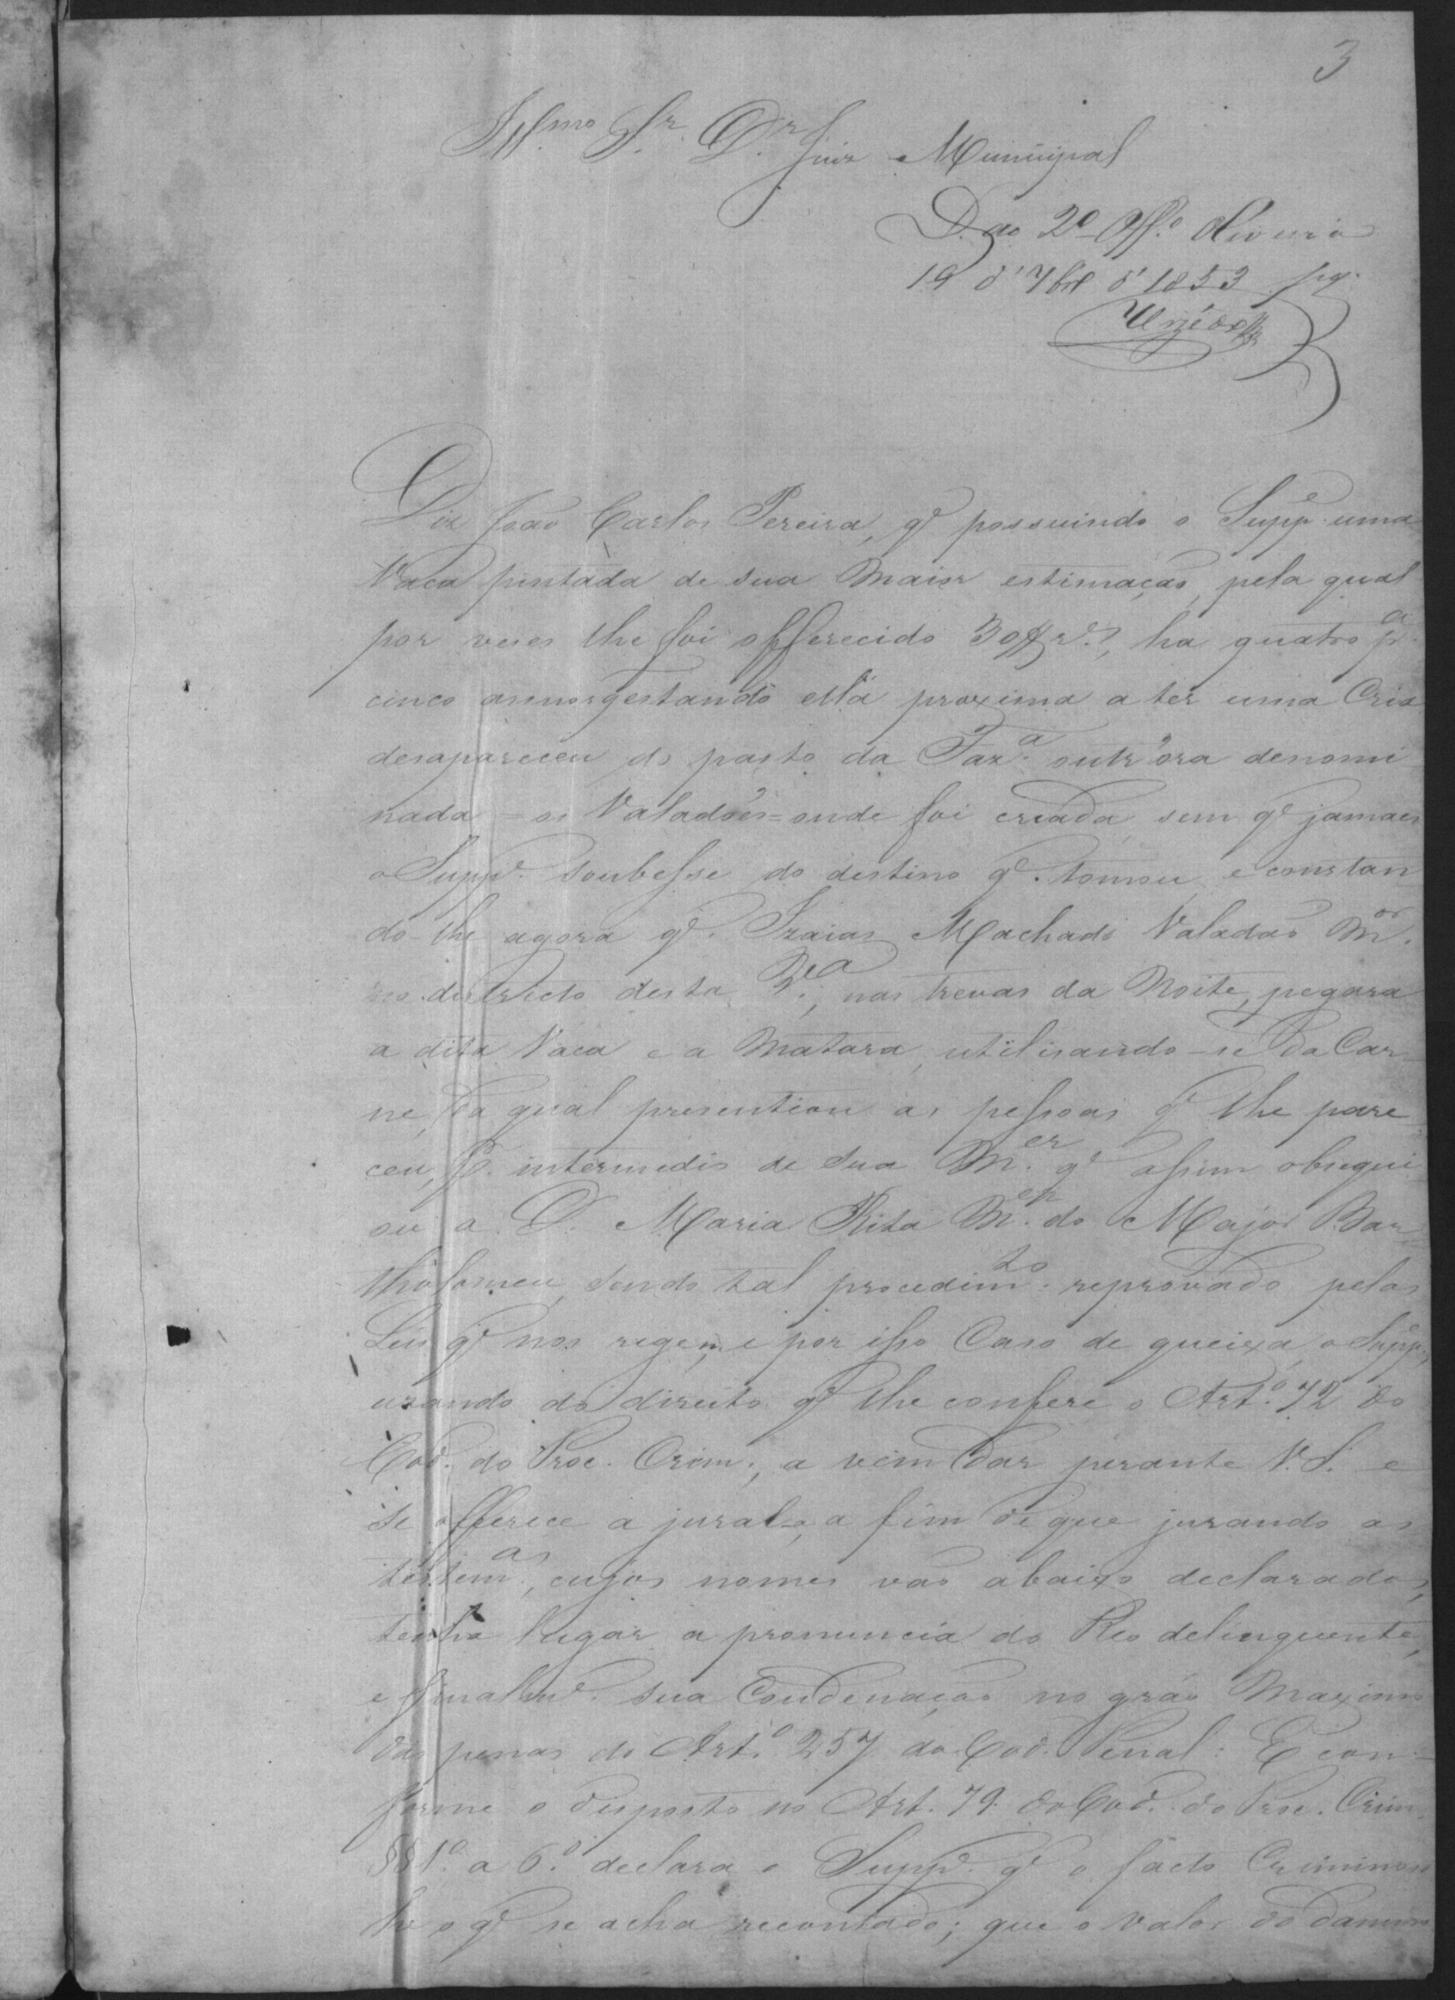 3
Ill.mo Sr. Dr. Juiz Municipal
D. ao 2º Off.º Oliveira
19 d' 7br.º d' 1853 pg.
Diz João Carlos Pereira, q.e possuindo o Supp.e uma
Vaca pintada de sua maior estimação, pela qual
por veses lhe foi offerecido 30$rs., ha quatro p.a
cinco annos, estando ella proxima a ter uma Cria
desapareceu do pasto da Faz.a outr'ora denomi
nada = os Valadões = onde foi creada, sem q.e jamais
o Supp.e soubesse do destino q.e tomou, e constan
do-lhe agora q.e Izaias Machado Valadão m.or
no districto desta, nas trevas da Noite, pegara
a dita Vaca e a matara, utilisando-se da Car
ne, da qual presentiou as pessoas q.e lhe pare
ceu, p.r intermedio de sua M.er q.e assim obsequi
ou a D. Maria Rita M.er do Major Bar
tholomeu, sendo tal procedim.to reprovado pelas
Leis q.e nos regem, e por isso Caso de queixa, o Supp.e,
usando do direito q.e lhe confere o Art.º 72 do
Cod. do Proc. Crim., a vem dar perante V.S. e
se offerece a jural-a, a fim de que jurando as
testem.as, cujos nomes vão abaixo declarados,
tenha lugar a pronuncia do Reo delinquente,
e finalm.e sua Condenação no gráo Maximo
das penas do Art.º 257 do Cod. Penal: E con-
forme o disposto no Art. 79 do Cod. do Proc. Crim.
§§ 1.º a 6.º declara o Supp.e q.e o facto Criminoso
he o q.e se acha recontado; que o valor do damno